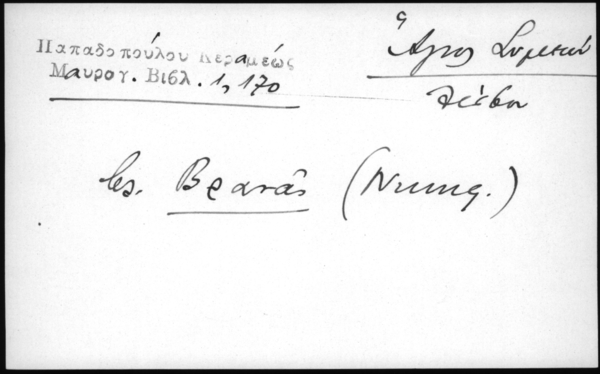 Παπαδοπούλου Κεραμέως
Μαυρογ. Βιβλ. 1, 170
Ἅγιος Συμεών
Λέσβου
Βρανᾶς